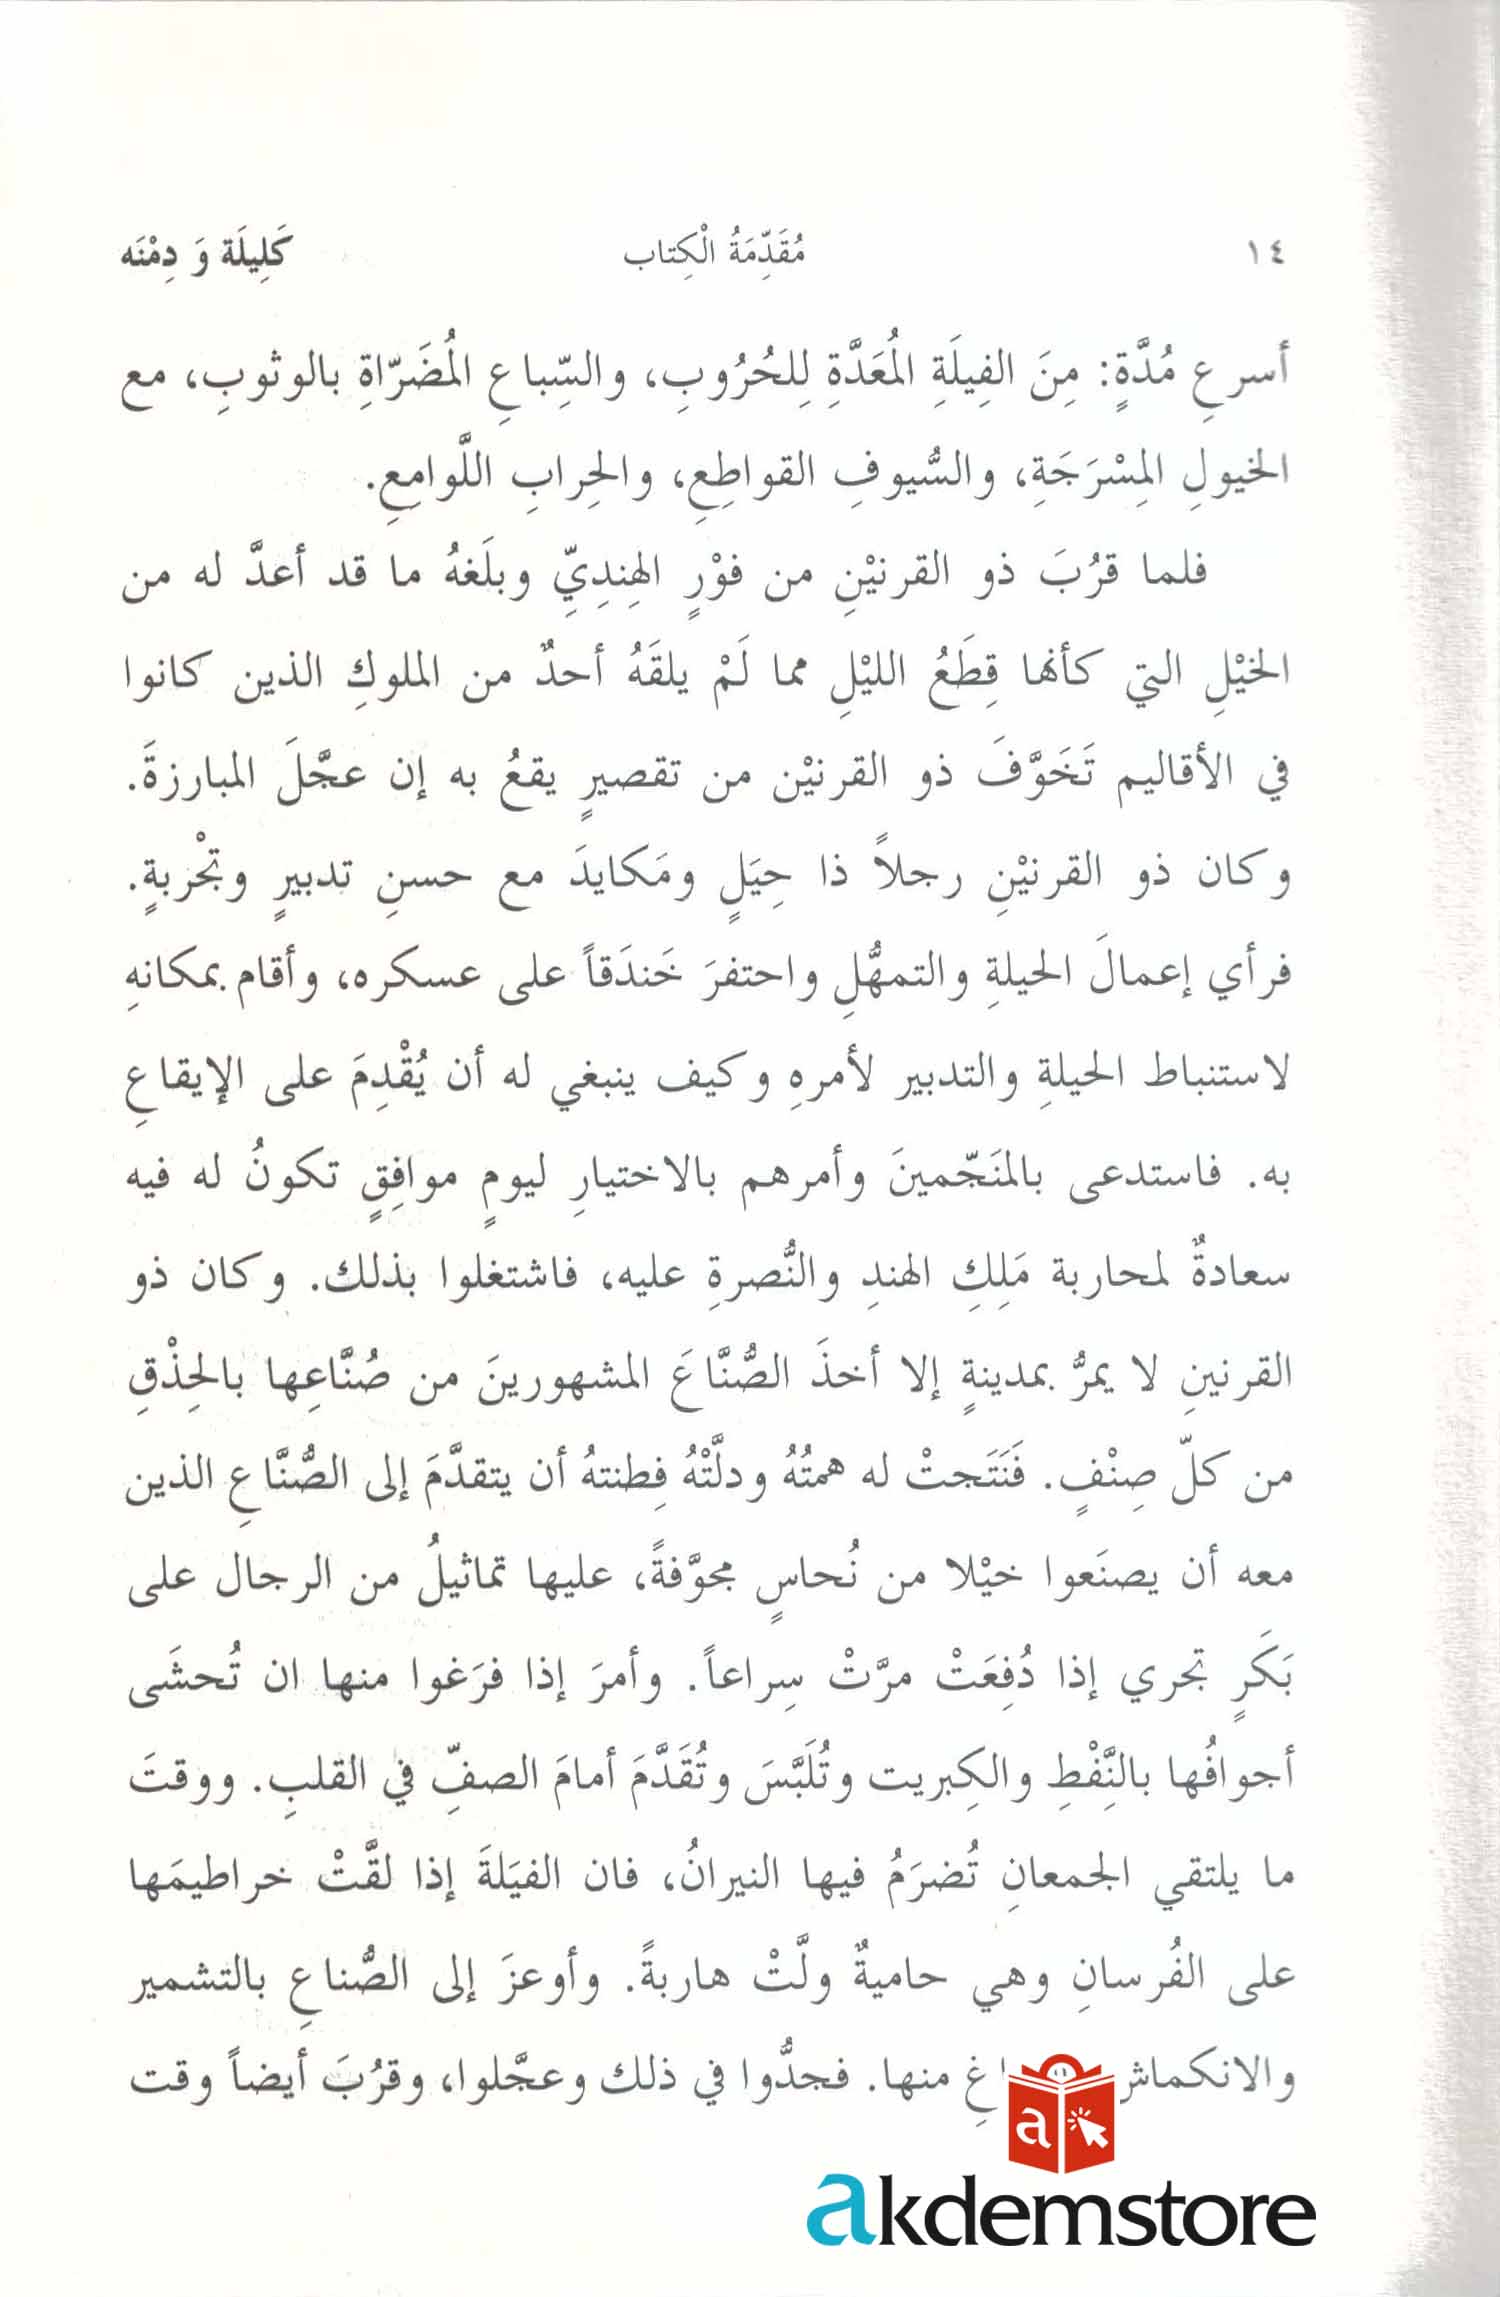 ١٤ مُقَدِّمَةُ الْكِتاب كَلِيلَة وَ دِمْنَه
أسرعِ مُدَّةٍ: مِنَ الفِيلَةِ المُعَدَّةِ لِلحُرُوبِ، والسِّباعِ المُضَرّاةِ بالوثوبِ، مع
الخيولِ المِسْرَجَةِ، والسُّيوفِ القواطِعِ، والحِرابِ اللَّوامِعِ.
فلما قرُبَ ذو القرنيْنِ من فوْرٍ الهِندِيِّ وبلَغهُ ما قد أعدَّ له من
الخيْلِ التي كأنها قِطَعُ الليْلِ مما لَمْ يلقَهُ أحدٌ من الملوكِ الذين كانوا
في الأقاليم تَخَوَّفَ ذو القرنيْن من تقصيرٍ يقعُ به إن عجَّلَ المبارزةَ.
وكان ذو القرنيْنِ رجلاً ذا حِيَلٍ ومَكايدَ مع حسنِ تدبيرٍ وتجْربةٍ.
فرأي إعمالَ الحيلةِ والتمهُّلِ واحتفرَ خَندَقاً على عسكره، وأقام بمكانهِ
لاستنباط الحيلةِ والتدبير لأمرهِ وكيف ينبغي له أن يُقْدِمَ على الإيقاعِ
به. فاستدعى بالمنَجّمينَ وأمرهم بالاختيارِ ليومٍ موافِقٍ تكونُ له فيه
سعادةٌ لمحاربة مَلِكِ الهندِ والنُّصرةِ عليه، فاشتغلوا بذلك. وكان ذو
القرنينِ لا يمرُّ بمدينةٍ إلا أخذَ الصُّنَّاعَ المشهورينَ من صُنَّاعِها بالحِذْقِ
من كلّ صِنْفٍ. فَنَتَجتْ له همتُهُ ودلَّتْهُ فِطنتهُ أن يتقدَّمَ إلى الصُّنَّاعِ الذين
معه أن يصنَعوا خيْلا من نُحاسٍ مجوَّفةً، عليها تماثيلُ من الرجال على
بَكَرٍ تجري إذا دُفِعَتْ مرَّتْ سِراعاً. وأمرَ إذا فرَغوا منها ان تُحشَى
أجوافُها بالنَّفْطِ والكِبريت وتُلَبَّسَ وتُقَدَّمَ أمامَ الصفِّ في القلبِ. ووقتَ
ما يلتقي الجمعانِ تُضرَمُ فيها النيرانُ، فان الفيَلةَ إذا لقَّتْ خراطيمَها
على الفُرسانِ وهي حاميةٌ ولَّتْ هاربةً. وأوعزَ إلى الصُّناعِ بالتشمير
والانكماش اغِ منها. فجدُّوا في ذلك وعجَّلوا، وقرُبَ أيضاً وقت
a
akdemstore